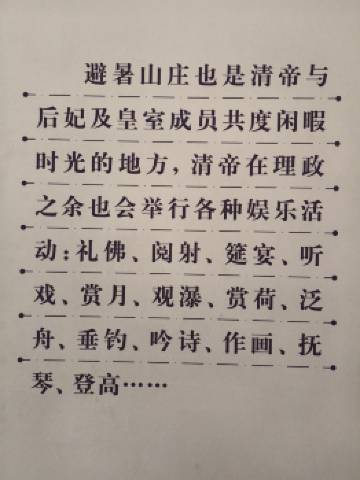 避暑山庄也是清帝与
后妃及皇室成员共度闲暇
时光的地方，清帝在理政
之余也会举行各种娱乐活
动：礼佛、阅射、筵宴、听
戏、赏月、观瀑、赏荷、泛
舟、垂钓、吟诗、作画、抚
琴、登高……